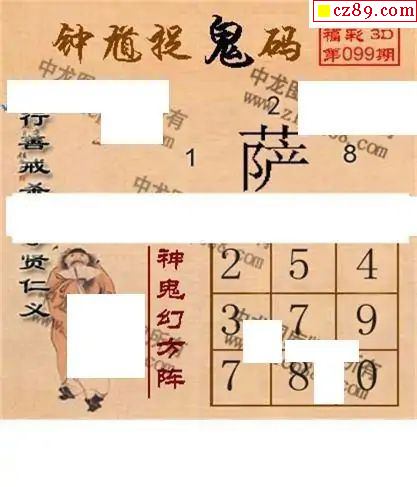 cz89.com
钟馗捉鬼码
福彩3D
第099期
2
1 萨 8
行善戒
贤仁义
神鬼幻方阵
2 5 4
3 7 9
7 8 0